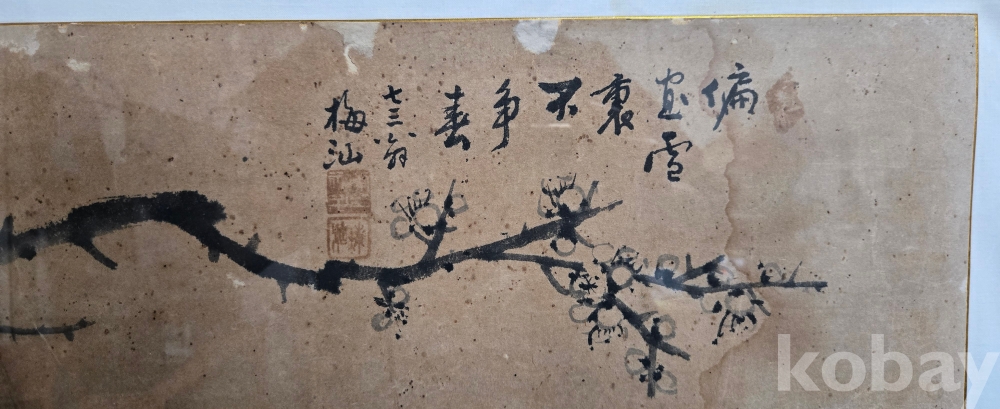 偏
宜雪
裏
不
争
春
七三翁
梅汕
kobay